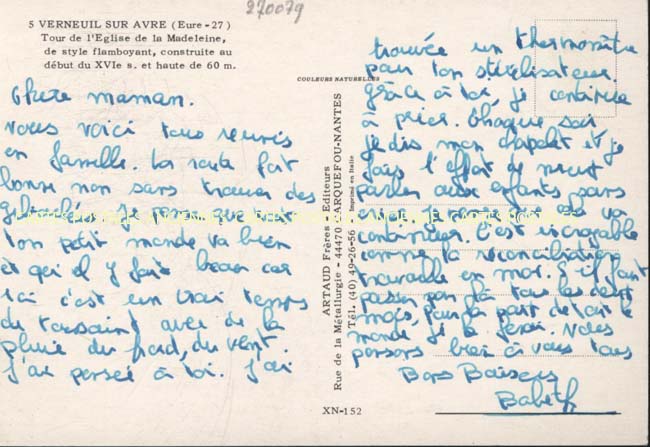 270079
5 VERNEUIL SUR AVRE (Eure - 27)
Tour de l'Eglise de la Madeleine,
de style flamboyant, construite au
début du XVIe s. et haute de 60 m.
COULEURS NATURELLES
Chère maman.
nous voici tous réunis
en famille. La route fait
bonne non sans trouver des
J'espère que
ton petit monde va bien
et qu'il y fait beau car
ici c'est un vrai temps
de toussaint avec de la
pluie du froid, du vent.
J'ai pensé à toi. J'ai
ARTAUD Frères - Editeurs
Rue de la Métallurgie - 44470 CARQUEFOU-NANTES
Tél. (40) 49-26-56 Imprimé en Italie
XN-152
trouvée un thermomètre
pour ton stérilisateur.
grâce à toi, je continue
à prier. Chaque soir
je dis mon chapelet et je
fais l'effort de
parler aux enfants sans
crier, j'espère que ça va
continuer. C'est incroyable
comme la réconciliation
travaille en moi. S'il faut
passer par là tous les deux
mois, pour la paix de tout le
monde je le ferai. Nous
pensons bien à vous tous
Bons Baisers
Babeth